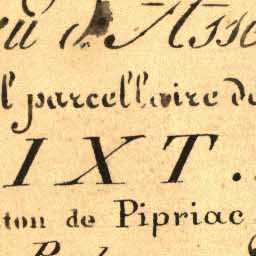 d'Asse
l parcellaire de
IXT.
ton de Pipriac